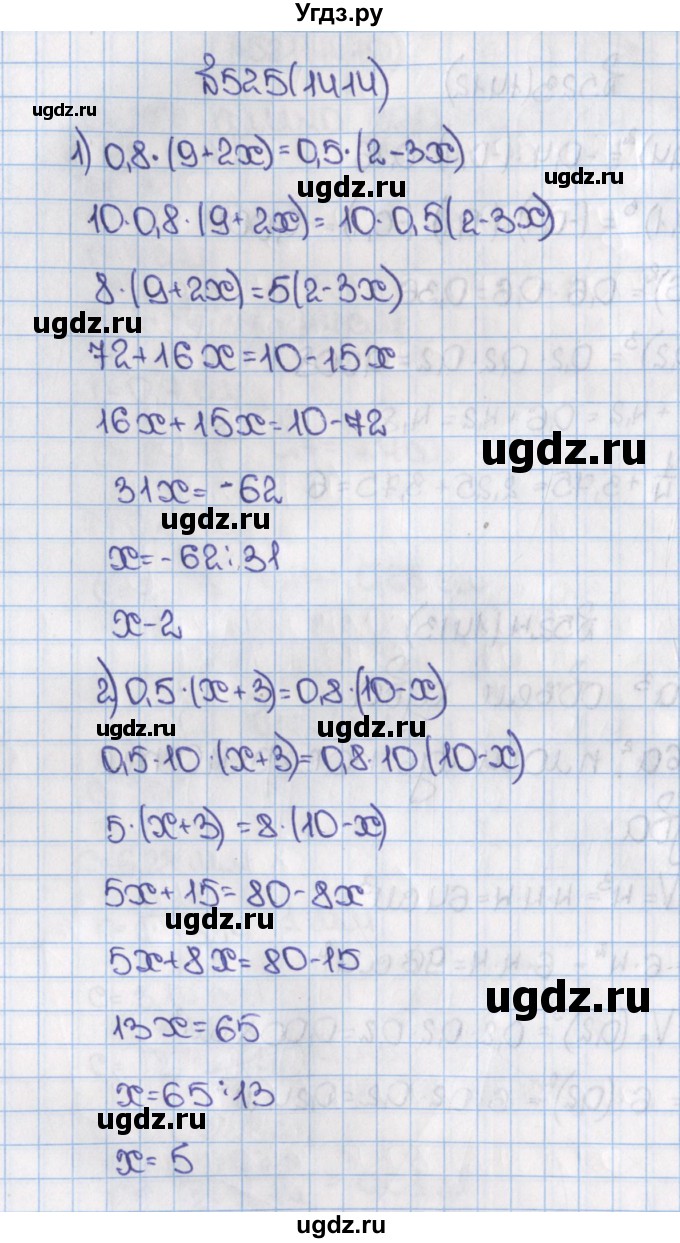 Угдз.ру
ugdz.ru
§525(1414)
1) 0,8·(9+2x)=0,5·(2-3x)
ugdz.ru
ugdz.ru
10·0,8·(9+2x)=10·0,5(2-3x)
8·(9+2x)=5(2-3x)
ugdz.ru
72+16x=10-15x
16x+15x=10-72
ugdz.ru
31x=-62
ugdz.ru
x=-62:31
x-2
2) 0,5·(x+3)=0,8·(10-x)
ugdz.ru
0,5·10·(x+3)=0,8·10(10-x)
5·(x+3)=8·(10-x)
5x+15=80-8x
ugdz.ru
5x+8x=80-15
ugdz.ru
13x=65
x=65:13
ugdz.ru
x=5
ugdz.ru